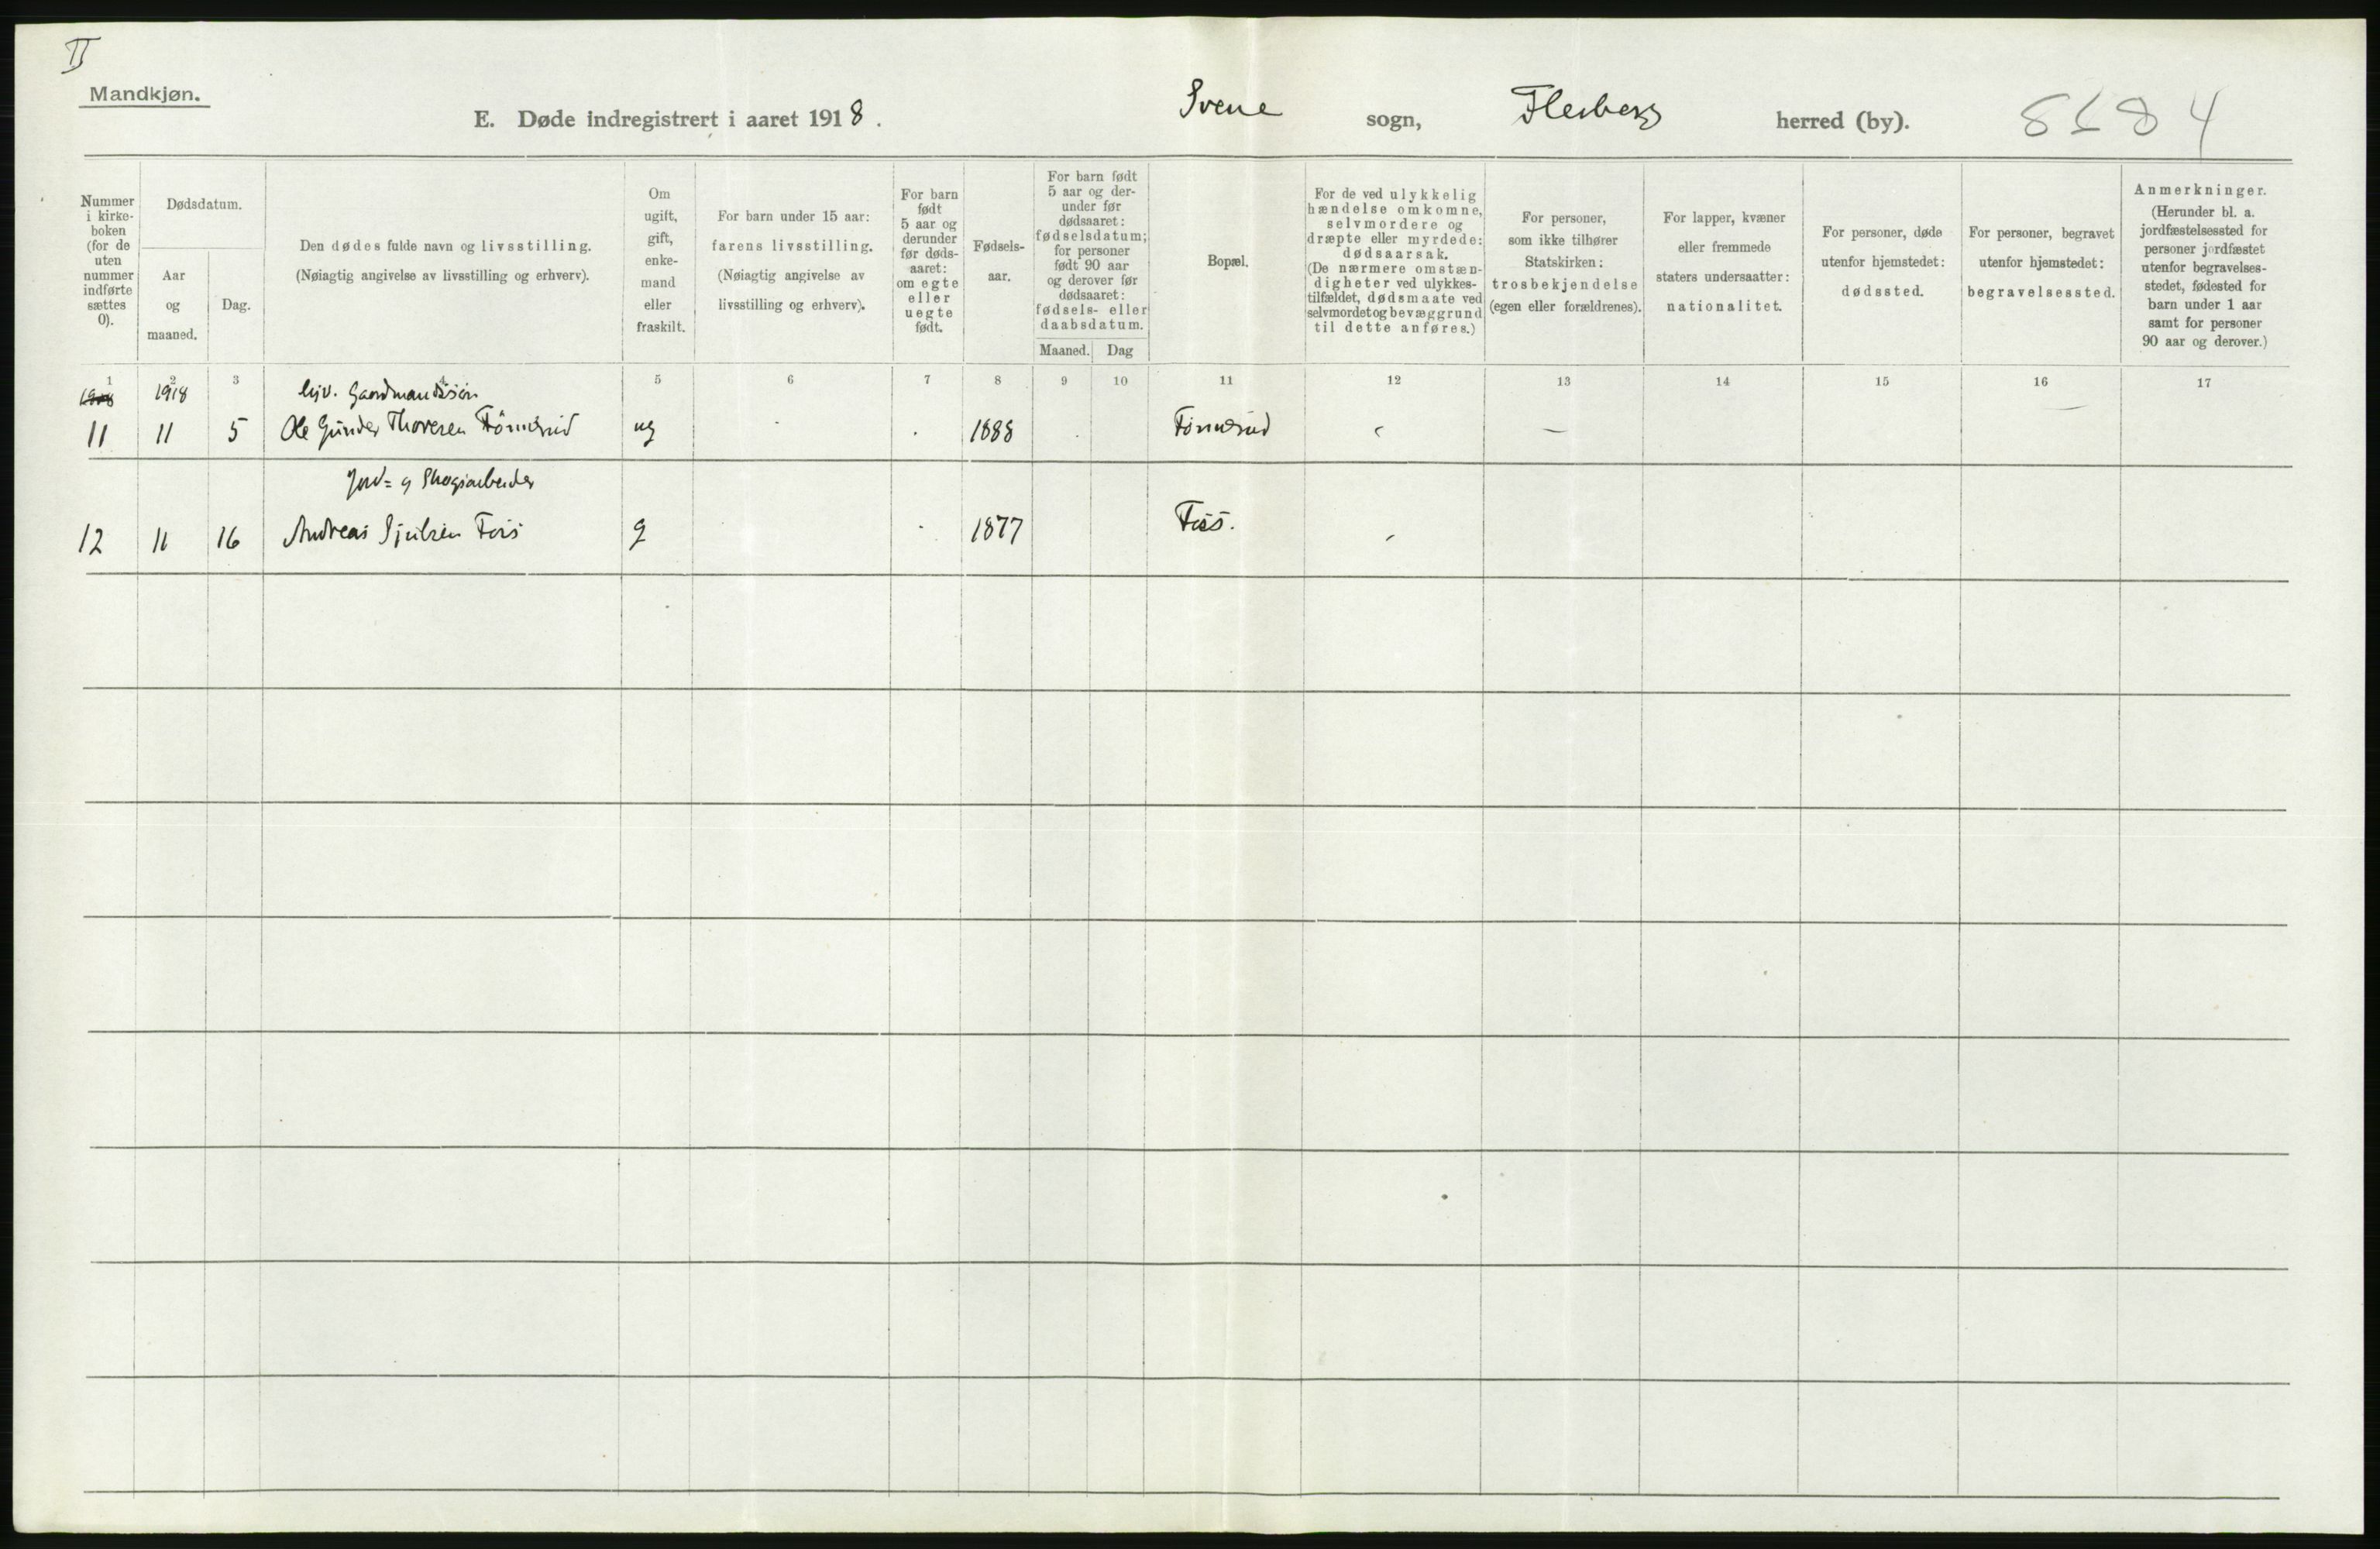 II
Mandkjøn.
E. Døde indregistrert i aaret 1918. Svene sogn, Flesberg herred (by).
Nummer i kirke- boken (for de uten nummer indførte sættes 0).
Dødsdatum.
Aar og maaned.
Dag.
Den dødes fulde navn og livsstilling.
(Nøiagtig angivelse av livsstilling og erhverv).
Om ugift, gift, enke- mand eller fraskilt.
For barn under 15 aar:
farens livsstilling.
(Nøiagtig angivelse av
livsstilling og erhverv).
For barn født 5 aar og derunder før døds- aaret: om egte eller uegte født.
Fødsels- aar.
For barn født 5 aar og der- under før dødsaaret: fødselsdatum; for personer født 90 aar og derover før dødsaaret: fødsels- eller daabsdatum.
Maaned. Dag
Bopæl.
For de ved ulykkelig hændelse omkomne, selvmordere og dræpte eller myrdede: dødsaarsak. (De nærmere omstæn- digheter ved ulykkes- tilfældet, dødsmaate ved selvmordet og bevæggrund til dette anføres.)
For personer, som ikke tilhører Statskirken: trosbekjendelse (egen eller forældrenes).
For lapper, kvæner eller fremmede staters undersaatter: nationalitet.
For personer, døde utenfor hjemstedet: dødssted.
For personer, begravet utenfor hjemstedet: begravelsessted.
Anmerkninger. (Herunder bl. a. jordfæstelsessted for personer jordfæstet utenfor begravelses- stedet, fødested for barn under 1 aar samt for personer 90 aar og derover.)
1 2 3 4 5 6 7 8 9 10 11 12 13 14 15 16 17
1918 Gaardmandssøn
11 11 5 Ole Gunder Thoresen ug - 1888 -
Jord= og Skogsarbeider
12 11 16 Andreas Foss g 1877 Foss. -